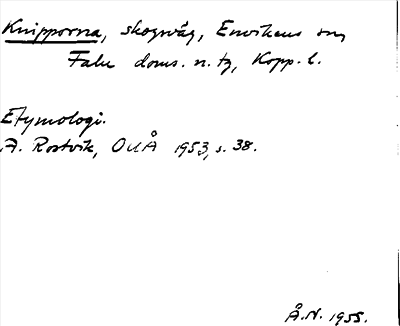 Knipporna, skogsväg, Envikens sn,
Falu doms. n. tg, Kopp. l.
Etymologi.
A. Rostvik, OUÅ 1953, s. 38.
Å.N. 1955.